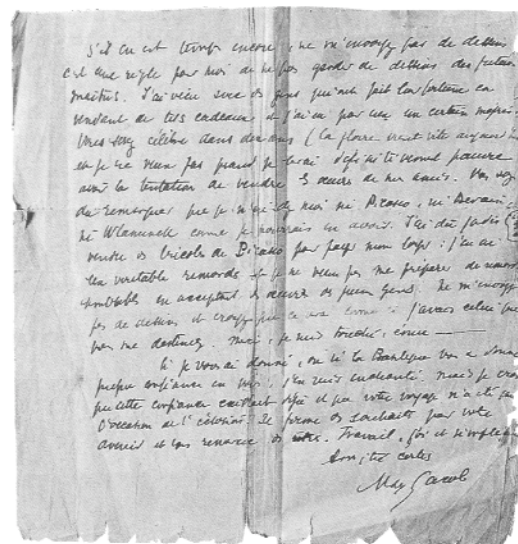 S'il en est temps encore, ne m'envoyez pas de dessins
c'est une règle pour moi de ne pas garder de dessins des futurs
maîtres. J'ai vécu avec des gens qui ont fait leur fortune en
vendant de tels cadeaux et j'ai eu pour eux un certain mépris.
Vous serez célèbre dans dix ans (la gloire vient vite aujourd'hui
et je ne veux pas quand je serai définitivement pauvre
avoir la tentation de vendre les œuvres de mes amis. Vous
de remarquer que je n'ai chez moi ni Picasso, ni Derain
ni Vlaminck comme je pourrais en avoir. J'ai dû jadis
vendre des bricoles de Picasso pour payer mon loyer : j'en ai
un véritable remords et je ne veux pas me préparer de remords
semblables en acceptant des œuvres de jeunes gens. Ne m'envoyez
pas de dessins et croyez que ce sera comme si j'avais celui que
vous me destinez. Merci, je suis touché, ému —
Si je vous ai donné, ou si la Bretagne vous a donné
quelque confiance en vous, j'en suis enchanté. Mais je crois
que cette confiance existait déjà et que votre voyage n'a été que
l'occasion de l' Je forme des souhaits pour votre
avenir et vous remercie des vôtres. Travail, foi et simplicité
sont, certes
Max Jacob